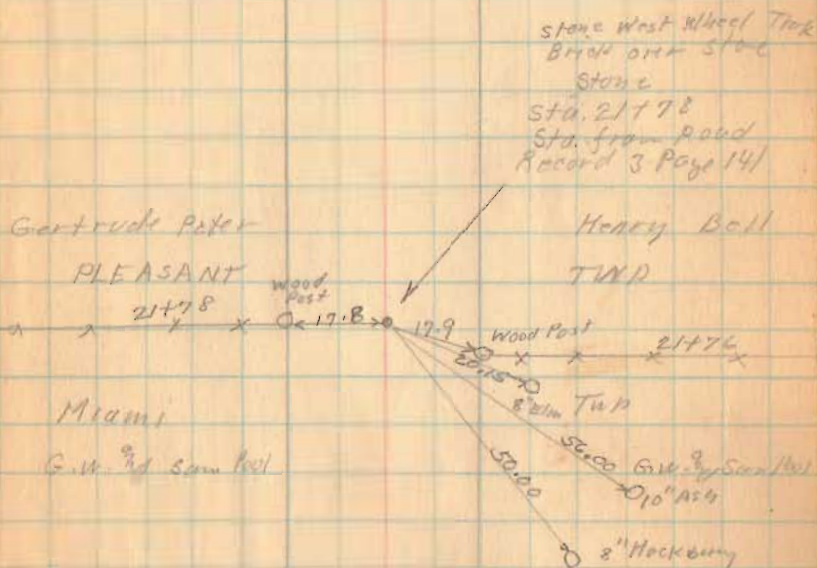 Stone West Wheel Track
Brick over Stone
Stone
Sta. 21+78
Sta. from Road
Record 3 Page 141
Gertrude Peter
Henry Bell
PLEASANT
TWP
21+78
Wood
Post
17.8
17.9
Wood Post
21+76
20.15
8" Elm
Twp
Miami
G.W. and Sam Pool
56.00
G.W. and Sam Pool
10" Ash
50.00
8" Hackberry